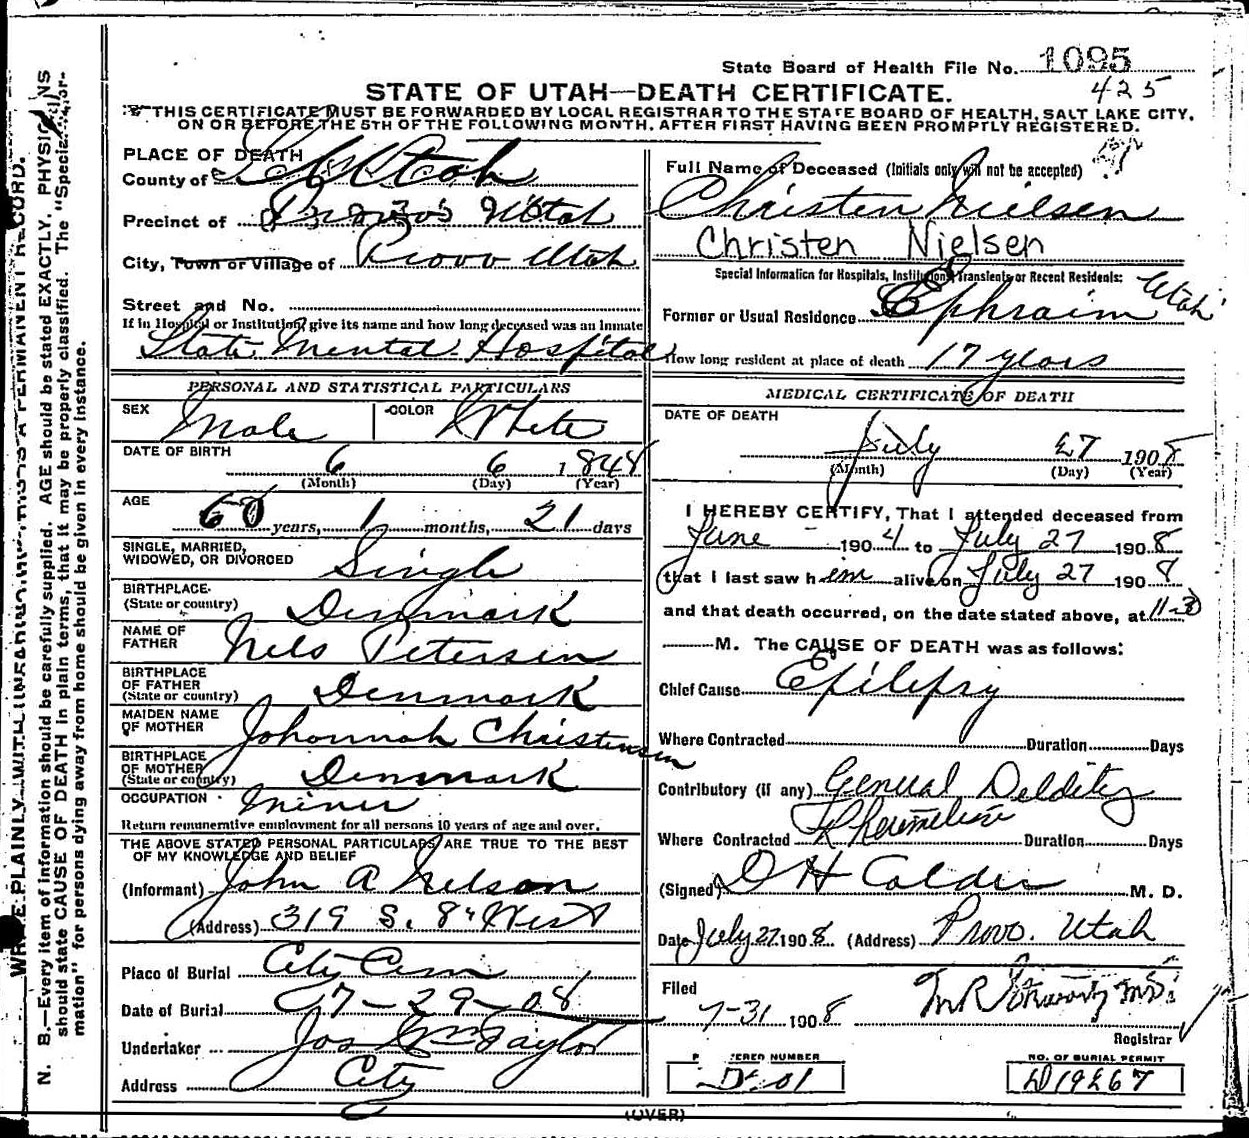 State Board of Health File No. 1095
425
STATE OF UTAH—DEATH CERTIFICATE.
THIS CERTIFICATE MUST BE FORWARDED BY LOCAL REGISTRAR TO THE STATE BOARD OF HEALTH, SALT LAKE CITY,
ON OR BEFORE THE 5TH OF THE FOLLOWING MONTH, AFTER FIRST HAVING BEEN PROMPTLY REGISTERED.
PLACE OF DEATH
County of Utah
Precinct of Provo Utah
City, Town or Village of Provo Utah
Street and No.
If in Hospital or Institution, give its name and how long deceased was an Inmate
State Mental Hospital
PERSONAL AND STATISTICAL PARTICULARS
SEX Male COLOR White
DATE OF BIRTH 6 6 1848
(Month) (Day) (Year)
AGE
60 years, 1 months, 21 days
SINGLE, MARRIED,
WIDOWED, OR DIVORCED Single
BIRTHPLACE
(State or country) Denmark
NAME OF
FATHER Nels Petersen
BIRTHPLACE
OF FATHER
(State or country) Denmark
MAIDEN NAME
OF MOTHER Johannah Christensen
BIRTHPLACE
OF MOTHER
(State or country) Denmark
OCCUPATION Miner
Return remunerative employment for all persons 10 years of age and over.
THE ABOVE STATED PERSONAL PARTICULARS ARE TRUE TO THE BEST
OF MY KNOWLEDGE AND BELIEF
(Informant) John A Nelson
(Address) 319 S. 8th West
Place of Burial City Cem
Date of Burial 7-29-08
Undertaker Jos Wm Taylor
Address City
Full Name of Deceased (Initials only will not be accepted)
Christen Nielsen
Christen Nielsen
Special Information for Hospitals, Institutions, Transients or Recent Residents:
Former or Usual Residence Ephraim Utah
How long resident at place of death 17 years
MEDICAL CERTIFICATE OF DEATH
DATE OF DEATH
July 27 1908
(Month) (Day) (Year)
I HEREBY CERTIFY, That I attended deceased from
June 1904 to July 27 1908
that I last saw h im alive on July 27 1908
and that death occurred, on the date stated above, at 11-30
M. The CAUSE OF DEATH was as follows:
Chief Cause Epilepsy
Where Contracted Duration Days
Contributory (if any) General Debility
Where Contracted Duration Days
(Signed) D H Calder M. D.
Date July 27 1908 (Address) Provo. Utah
Filed
7-31 1908
Registrar
ERED NUMBER
NO. OF BURIAL PERMIT
(OVER)
N. B.—Every item of information should be carefully supplied. AGE should be stated EXACTLY. PHYSICIANS
should state CAUSE OF DEATH in plain terms, that it may be properly classified. The "Special Infor-
mation" for persons dying away from home should be given in every instance.